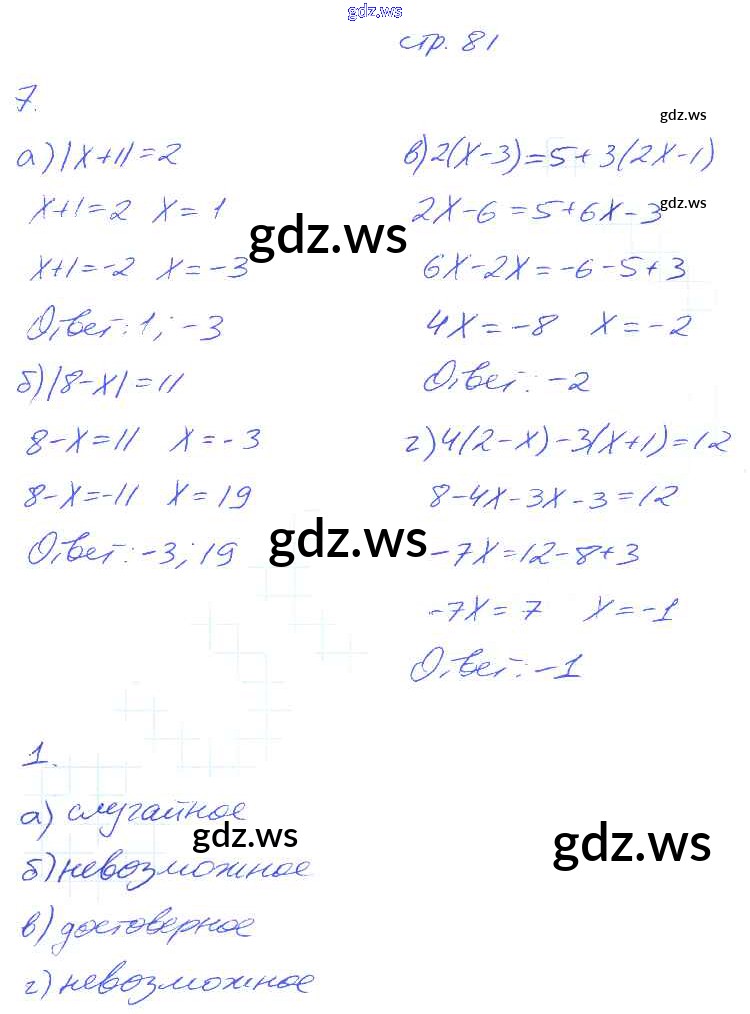 gdz.ws
стр. 81
7.
а) |x+1|=2
x+1=2 x=1
x+1=-2 x=-3
Ответ: 1; -3
б) |8-x|=11
8-x=11 x=-3
8-x=-11 x=19
Ответ: -3; 19
gdz.ws
в) 2(x-3)=5+3(2x-1)
2x-6=5+6x-3
gdz.ws
gdz.ws
6x-2x=-6-5+3
4x=-8 x=-2
Ответ: -2
г) 4(2-x)-3(x+1)=12
8-4x-3x-3=12
gdz.ws
-7x=12-8+3
-7x=7 x=-1
Ответ: -1
1.
а) случайное
gdz.ws
gdz.ws
б) невозможное
в) достоверное
г) невозможное